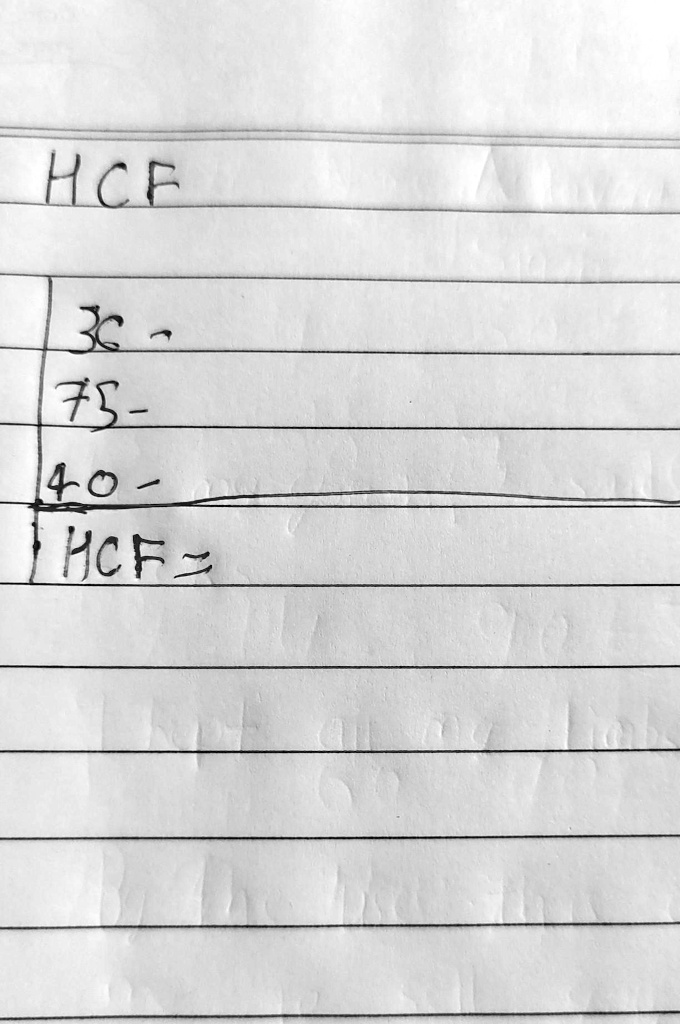 HCF
36 -
75-
40 -
HCF =